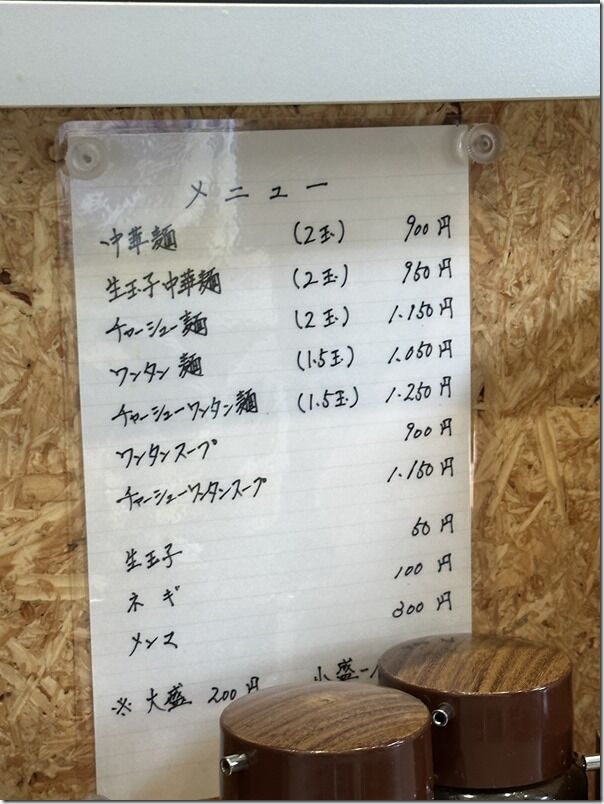 メニュー
中華麺 (2玉) 900円
生玉子中華麺 (2玉) 950円
チャーシュー麺 (2玉) 1.150円
ワンタン麺 (1.5玉) 1.050円
チャーシューワンタン麺 (1.5玉) 1.250円
ワンタンスープ 900円
チャーシューワンタンスープ 1.150円
生玉子 50円
ネギ 100円
メンマ 300円
※大盛 200円 小盛-